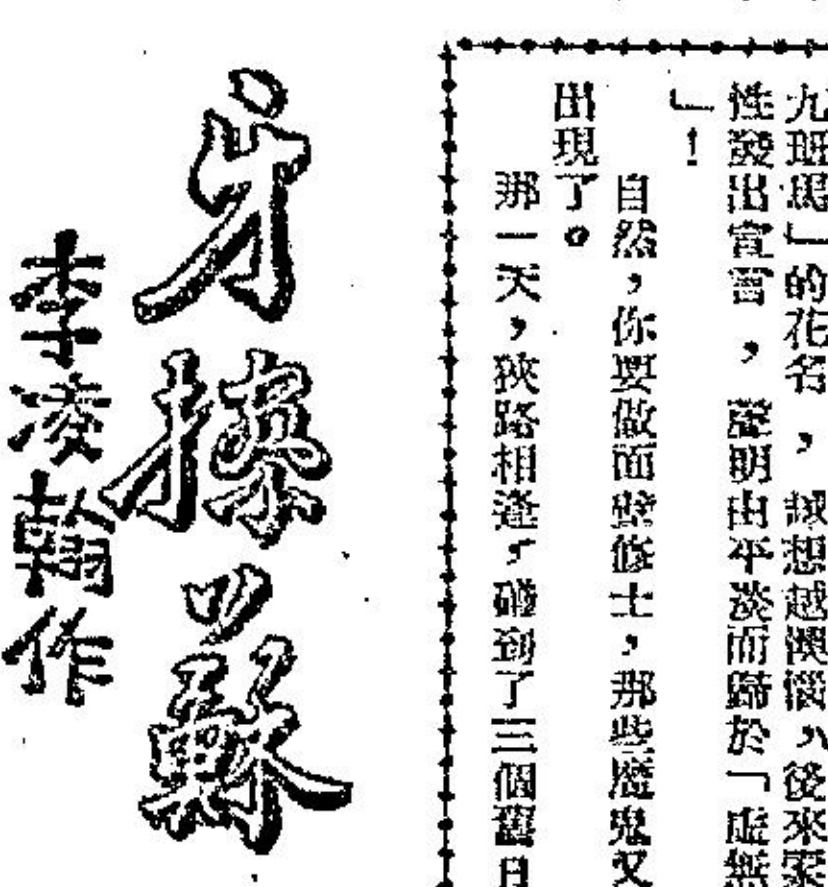 九班馬」的花名，越想越懊惱，後來索
性發出宣言，聲明由平淡而歸於「虛無
」！
自然，你要做面壁修士，那些魔鬼又
出現了。
那一天，狹路相逢，碰到了三個舊日
牙擦蘇
李凌翰作